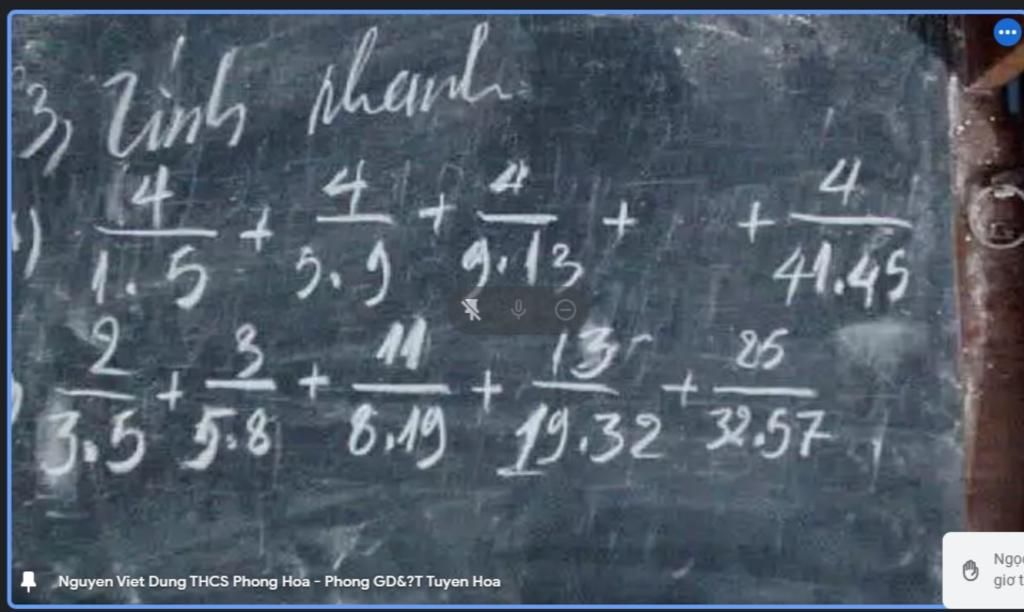 3, Tính nhanh
4/1.5 + 4/5.9 + 4/9.13 + + 4/41.45
2/3.5 + 3/5.8 + 11/8.19 + 13/19.32 + 25/32.57
Nguyen Viet Dung THCS Phong Hoa - Phong GD&?T Tuyen Hoa
giơ t